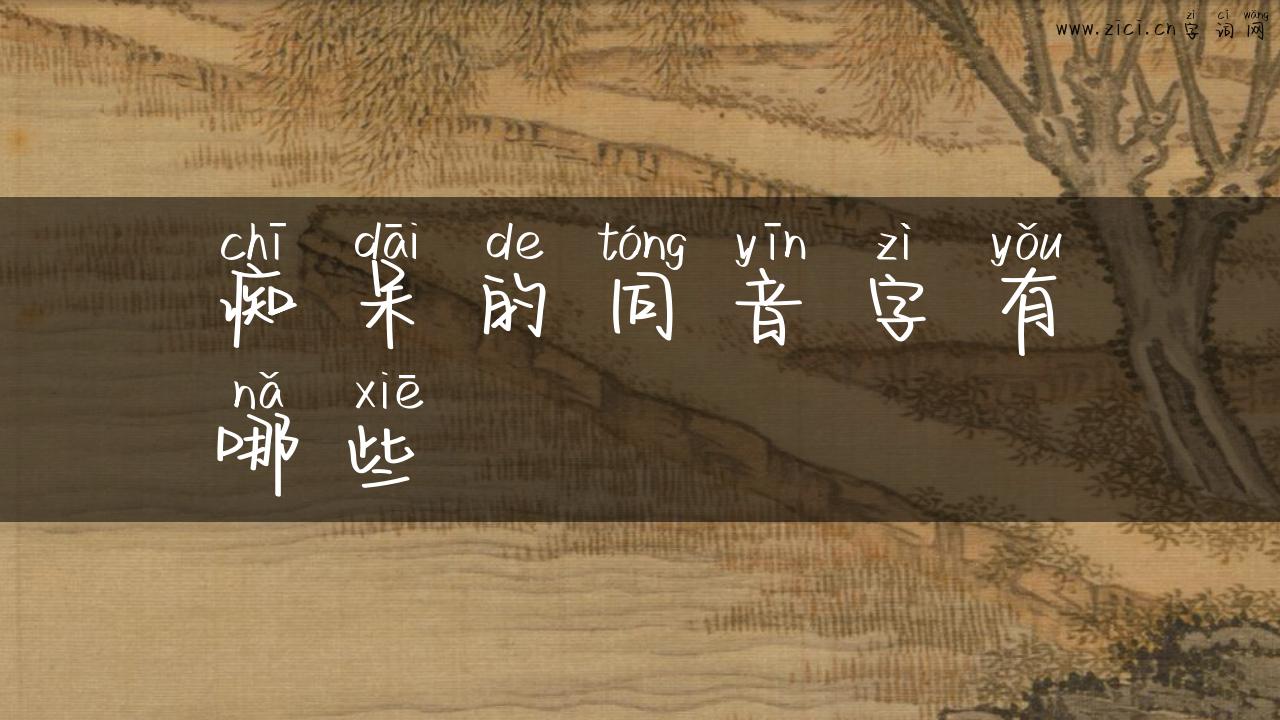 zì cí wǎng
www.zici.cn字词网
chī dāi de tóng yīn zì yǒu
痴呆的同音字有
nǎ xiē
哪些